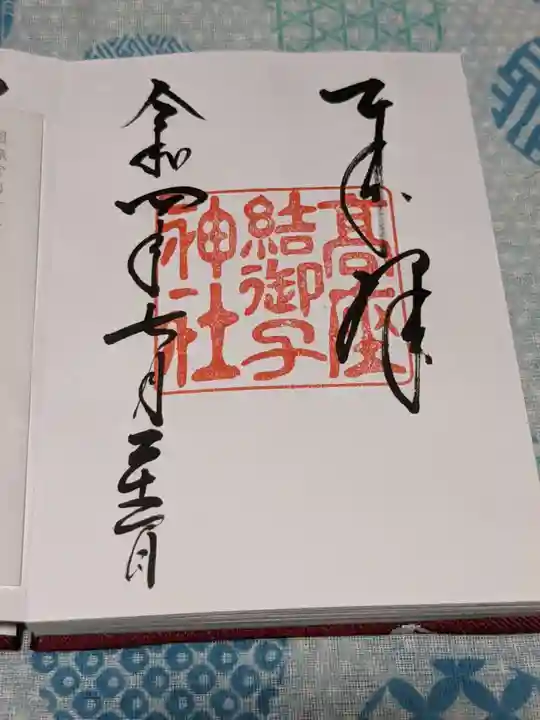 奉拝
高座
結御子
神社
令和四年七月二十二日